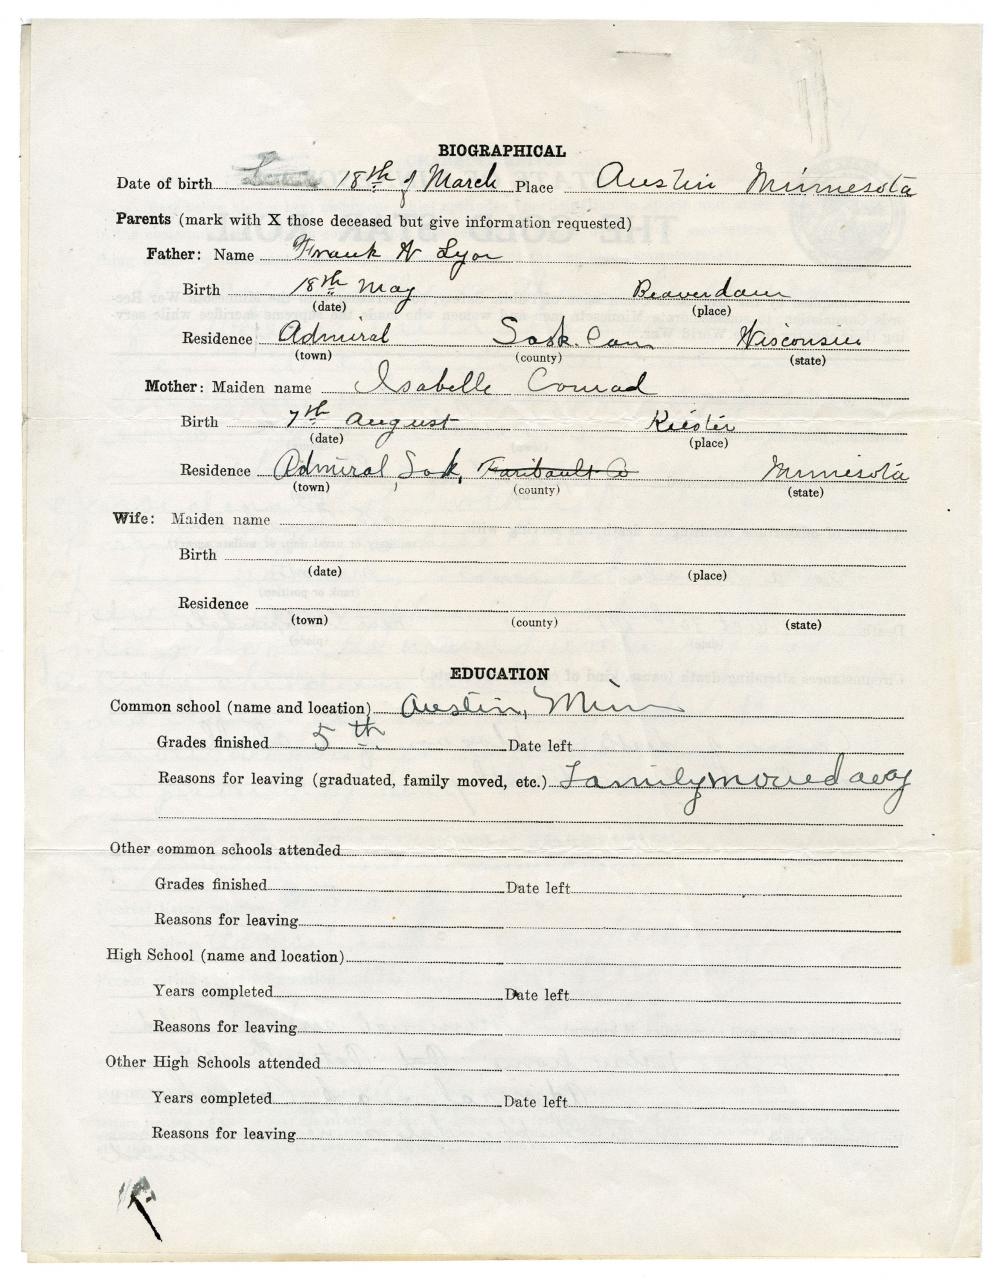 BIOGRAPHICAL
Date of birth 18th of March Place Austin Minnesota
Parents (mark with X those deceased but give information requested)
Father: Name Frank A Lyon
Birth 18th May Beaverdam
(date) (place)
Residence Admiral Sask. Can Wisconsin
(town) (county) (state)
Mother: Maiden name Isabelle Conrad
Birth 7th August Kiester
(date) (place)
Residence Admiral, Sask, Faribault Co Minnesota
(town) (county) (state)
Wife: Maiden name
Birth
(date) (place)
Residence
(town) (county) (state)
EDUCATION
Common school (name and location) Austin, Minn
Grades finished 5th Date left
Reasons for leaving (graduated, family moved, etc.) Family moved away
Other common schools attended
Grades finished Date left
Reasons for leaving
High School (name and location)
Years completed Date left
Reasons for leaving
Other High Schools attended
Years completed Date left
Reasons for leaving